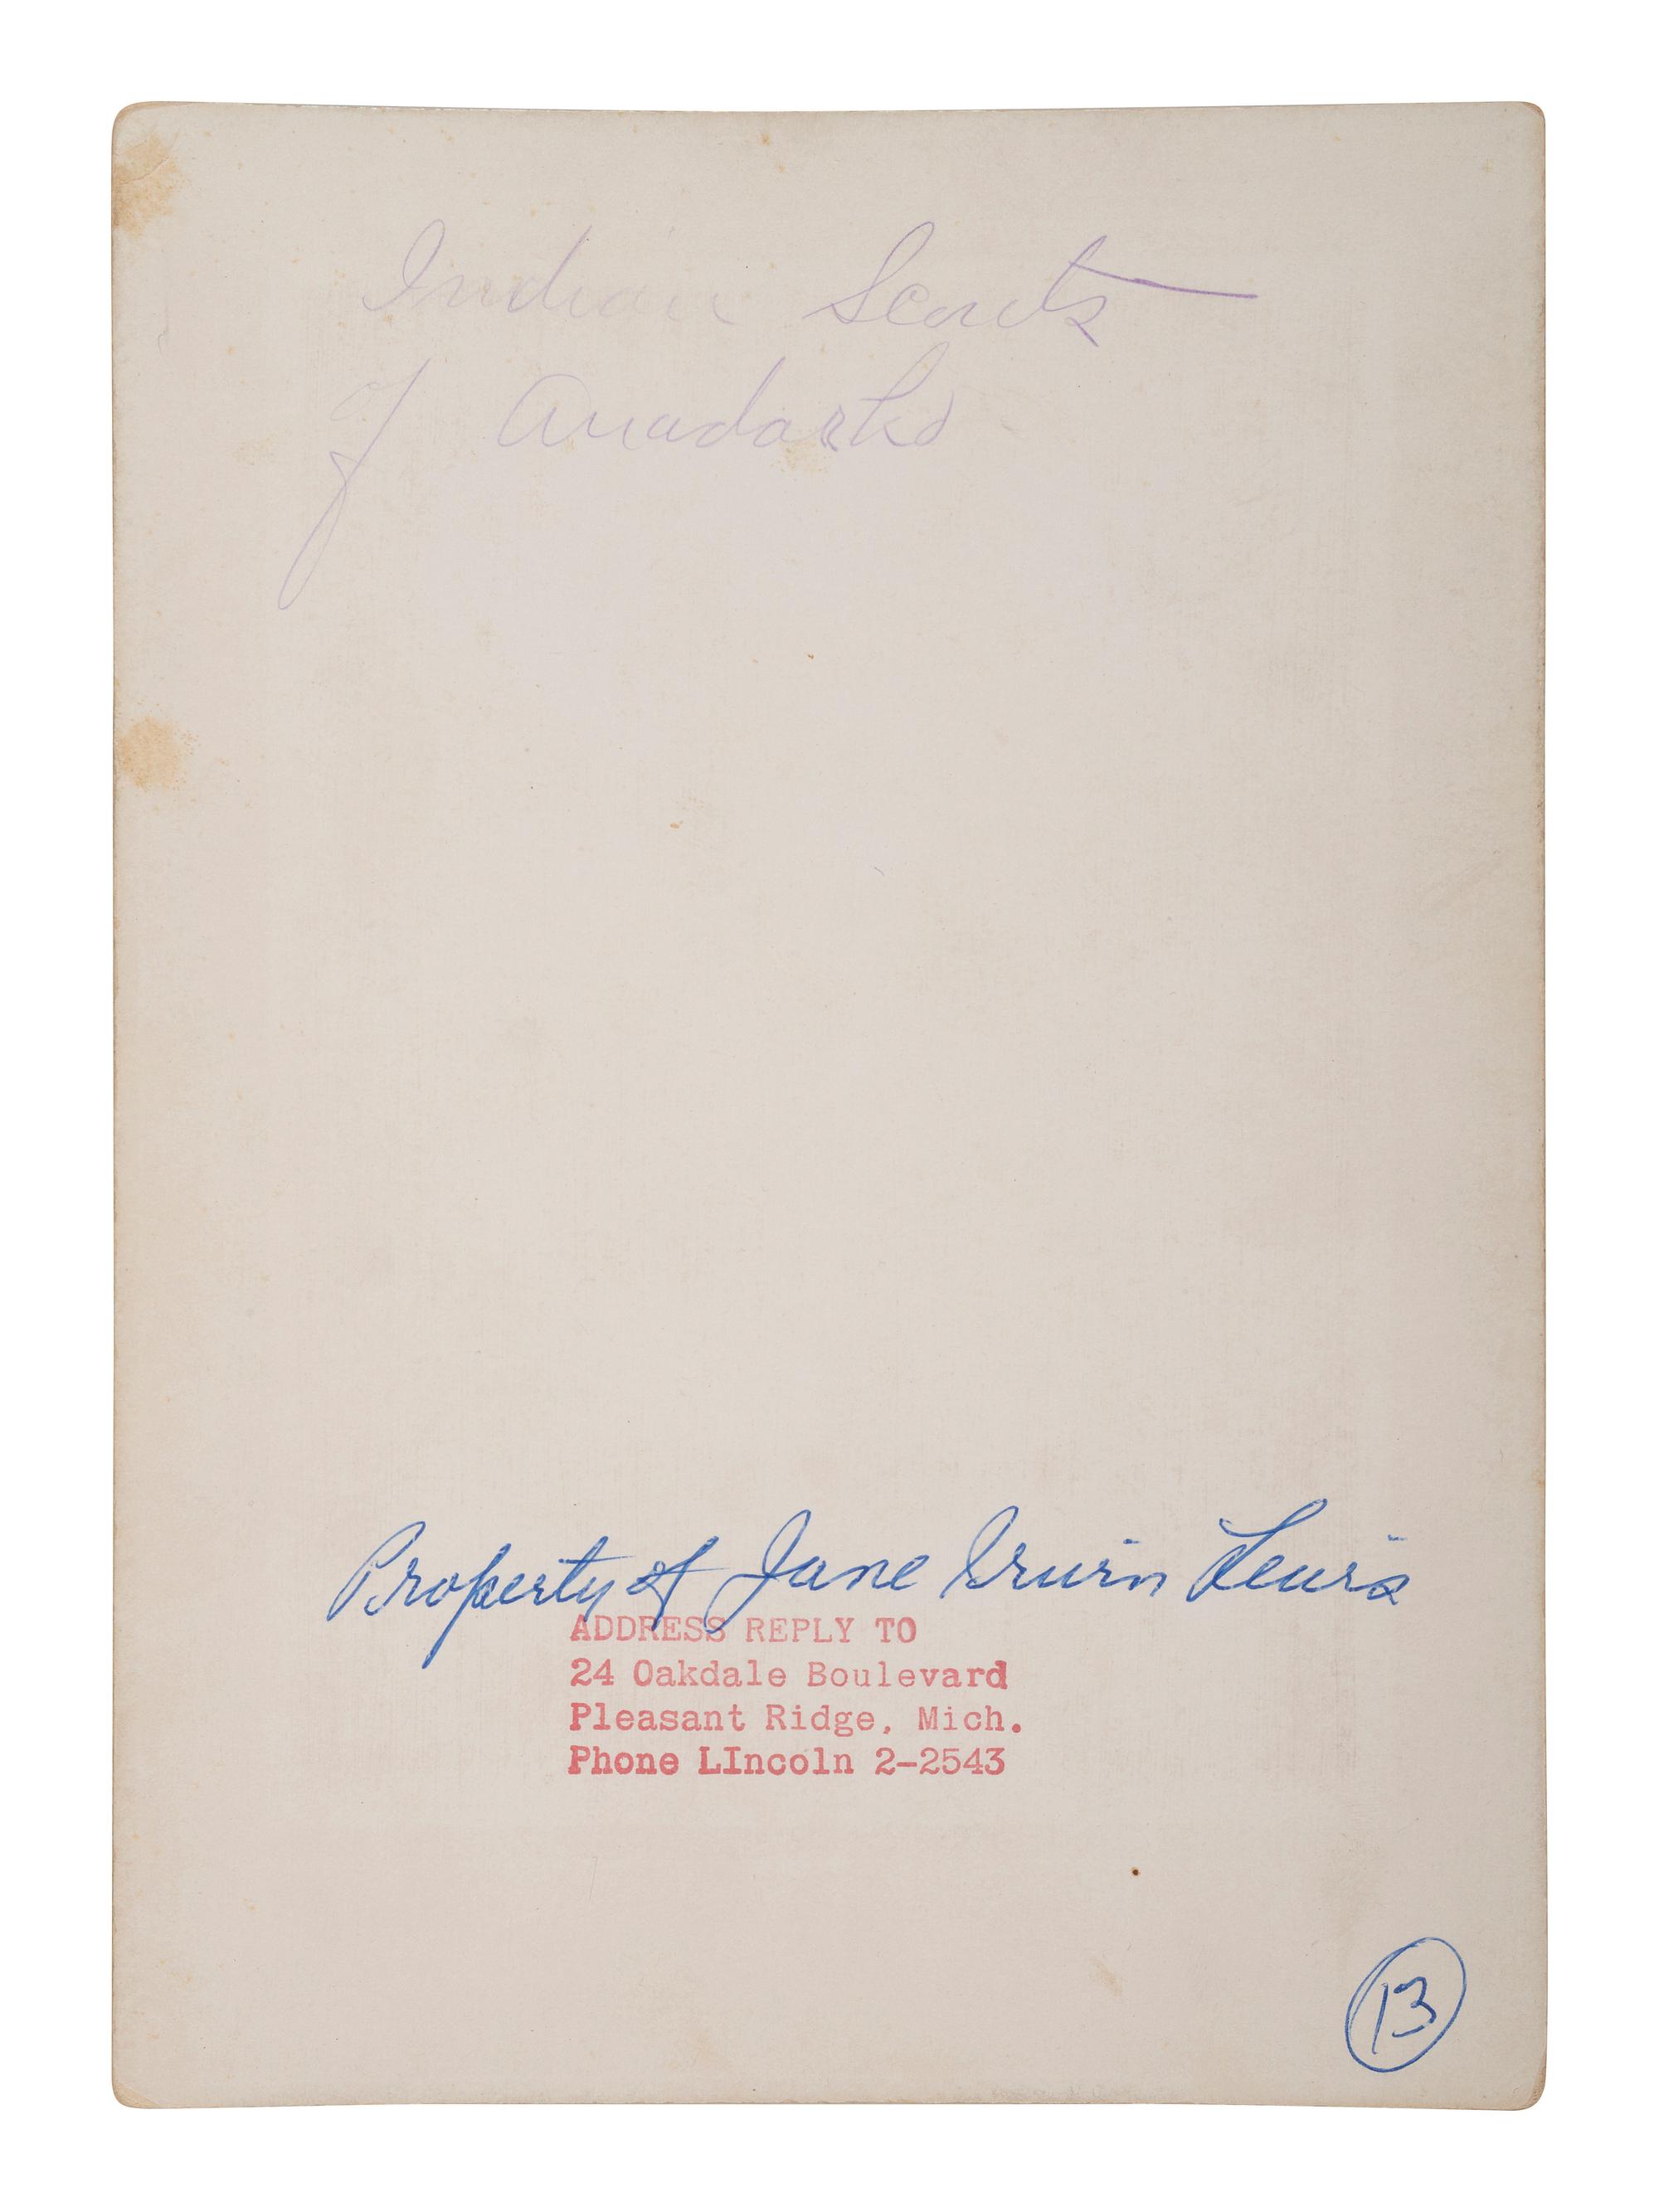 Indian Scouts
of Anadarko
Property of Jane Irwin Lewis
ADDRESS REPLY TO
24 Oakdale Boulevard
Pleasant Ridge, Mich.
Phone LIncoln 2-2543
13